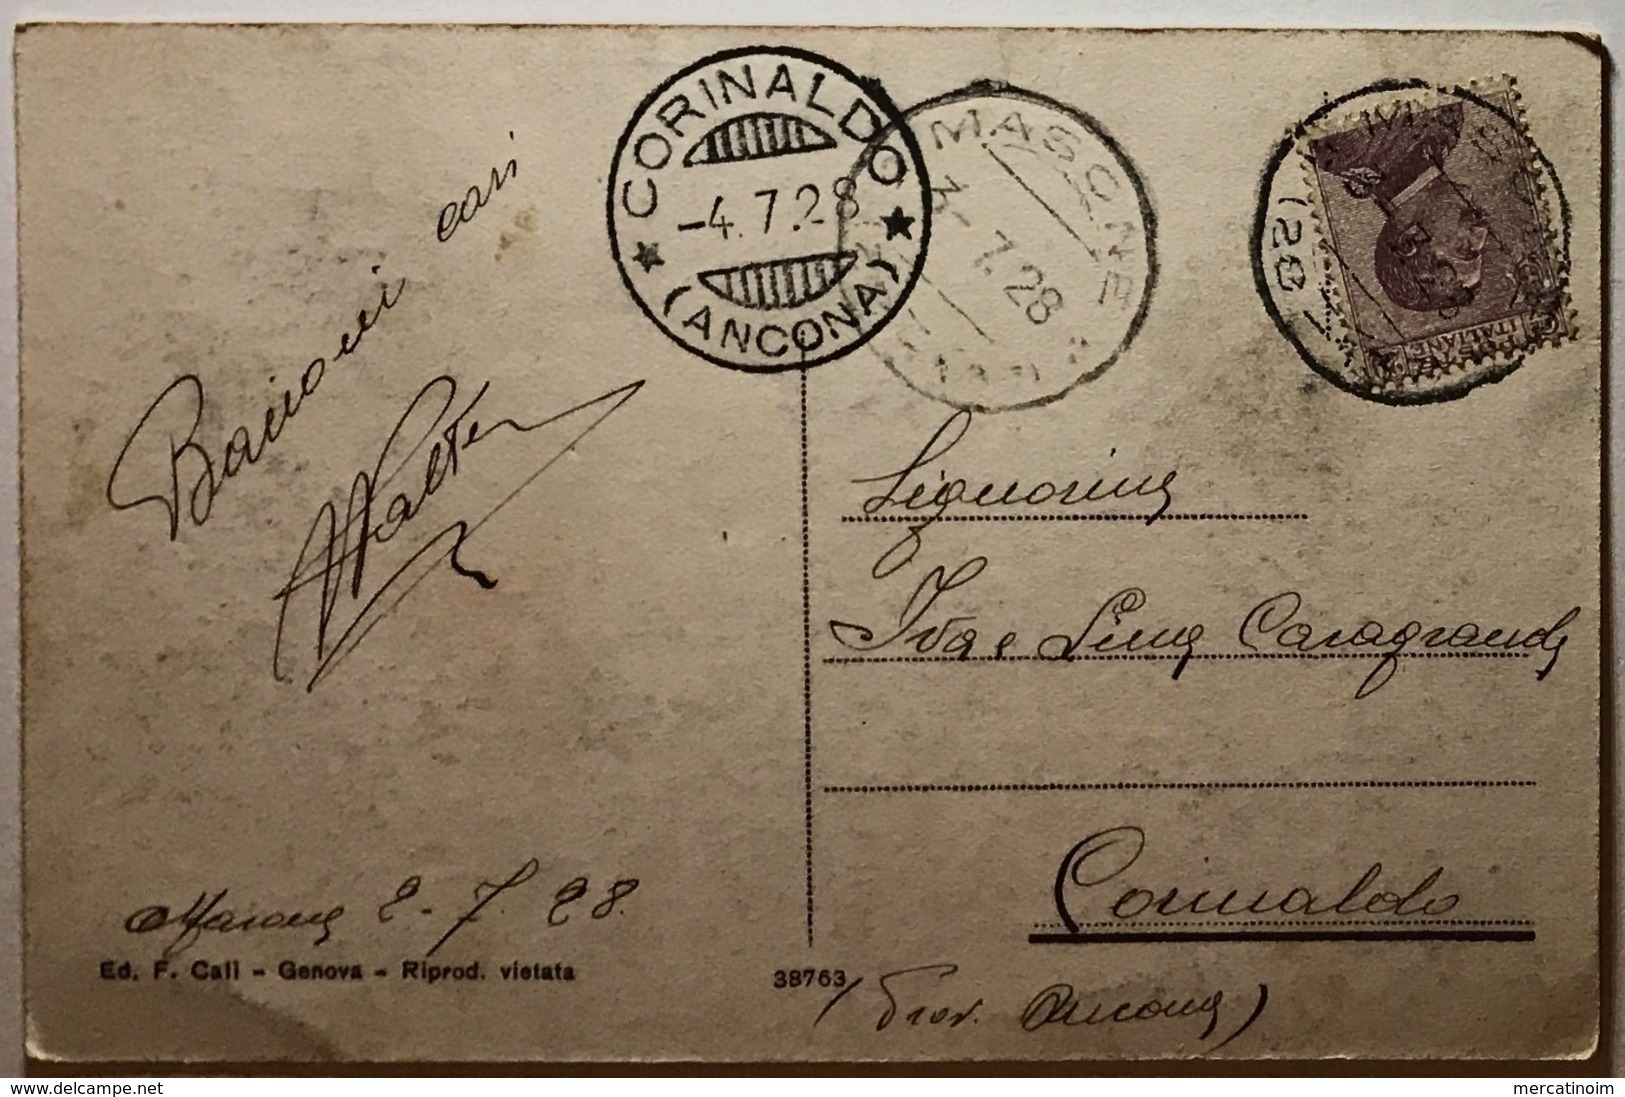 CORINALDO
-4.7.28
(ANCONA)
MASONE
3.7.28
3.7.28
POSTE ITALIANE
Bacioni cari
Walter
Signorine
Iva e Lina Casagrande
Corinaldo
(Prov. Ancona)
Masone 2-7.28.
Ed. F. Cali - Genova - Riprod. vietata
38763
www.delcampe.net
mercatinoim